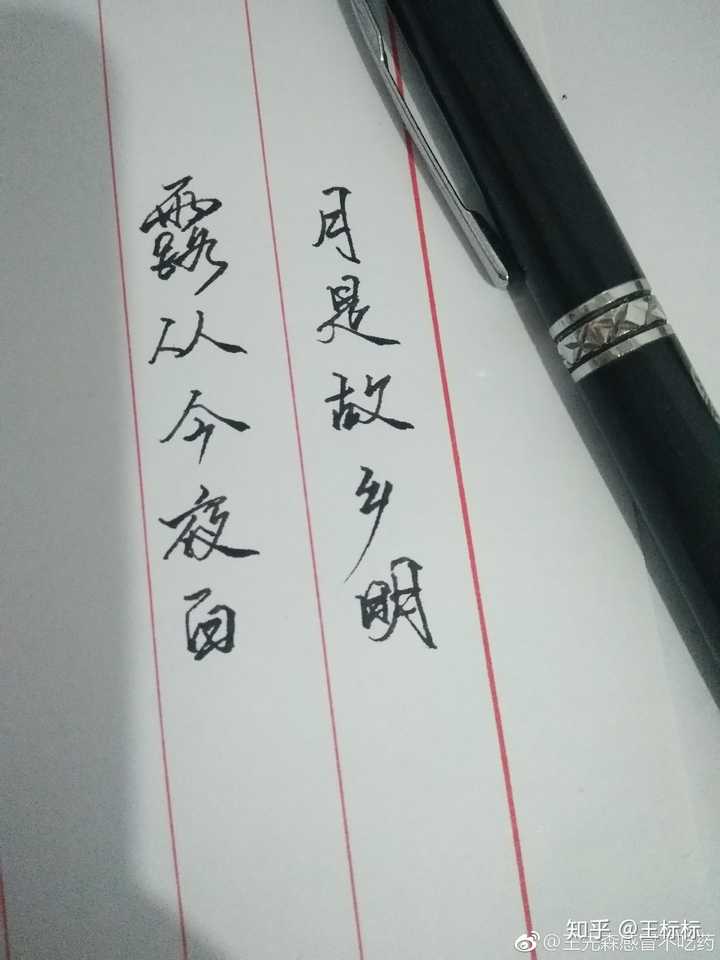 月是故乡明
露从今夜白
知乎 @王标标
@王先森感冒不吃药